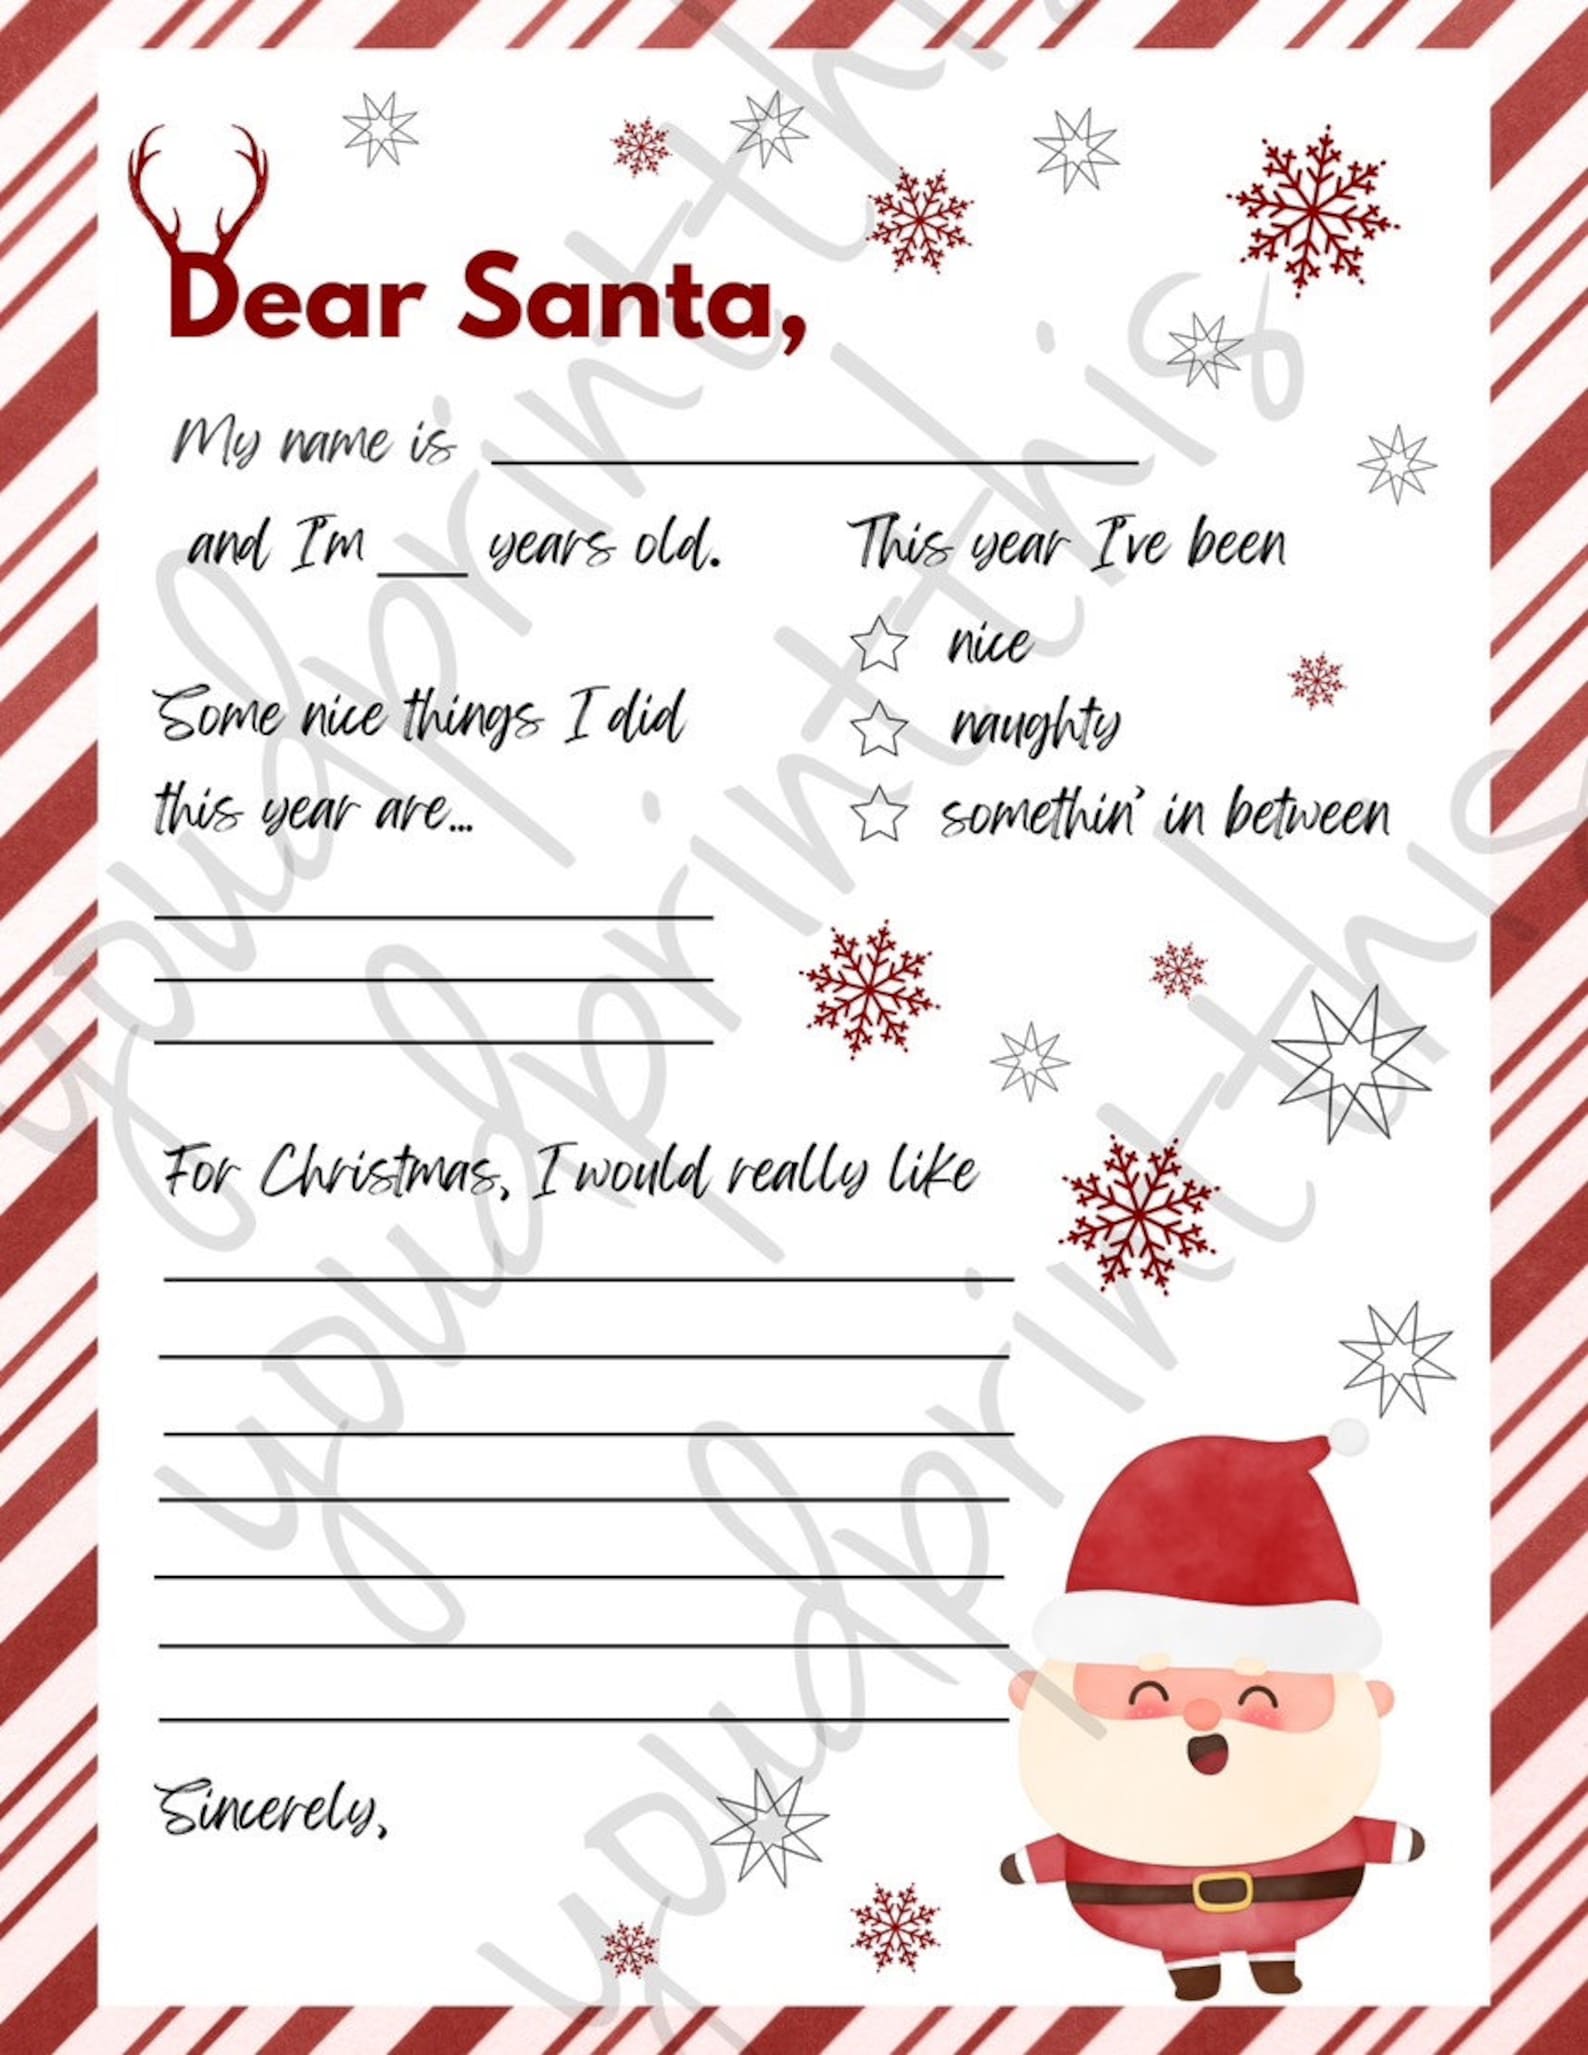 Dear Santa,
My name is
and I'm ___ years old.
This year I've been
nice
naughty
somethin' in between
Some nice things I did
this year are...
For Christmas, I would really like
Sincerely,
youdprintthis
youdprintthis
youdprintthis